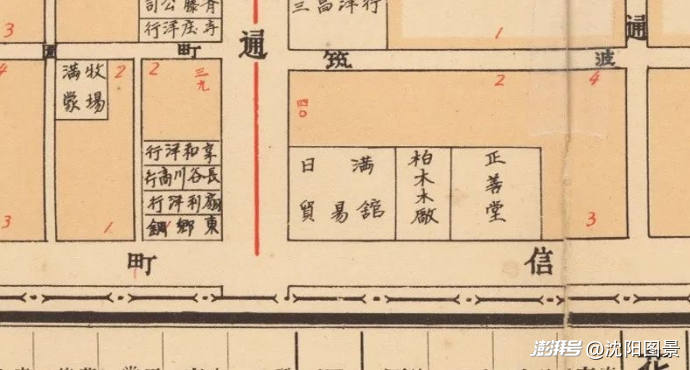 司公藤青
行洋庄寺
三昌洋行
3
1
通
通
町
筑
波
4
2
2
三九
四〇
2
4
牧場
満蒙
行洋和享
行商川谷長
行洋利扇
鋼郷東
日満
貿易舘
柏木木廠
正善堂
3
1
3
町
信
花
澎湃号 @沈阳图景